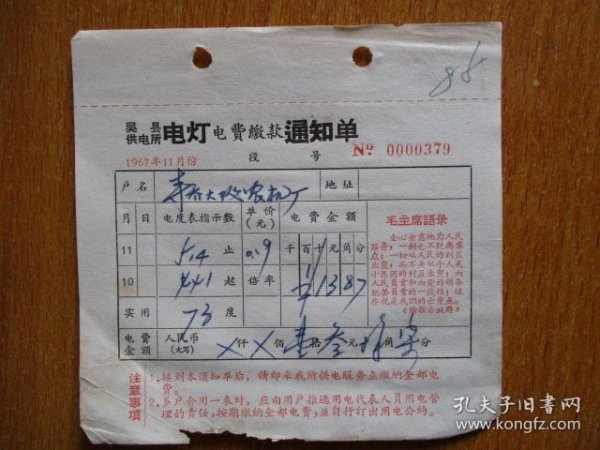 85
吴县
供电所 电灯 电費繳款 通知单
1967年11月份 段 号 № 0000379
户名 地址
月 日 电度表指示数 单价(元) 电費金額
11 514 止 0.19 千百十元角分
10 441 起 倍率 ¥13.87
实用 73 度
电費金額 人民币(大写) ×仟×佰壹拾叁元捌角柒分
毛主席語录
全心全意地为人民
服务,一刻也不脫离羣
众;一切从人民的利益
出发,而不是从个人或
小集团的利益出发;向
人民負責和向党的領导
机关負責的一致性;这
些就是我們的出发点。
《論联合政府》
注意事項
1.接到本通知单后,請即来我所供电服务点繳納全部电
費。
2.多户合用一表时,应由用户推选用电代表人員用电管
理的責任,按期繳納全部电費,並自行訂出用电公約。
孔夫子旧书网